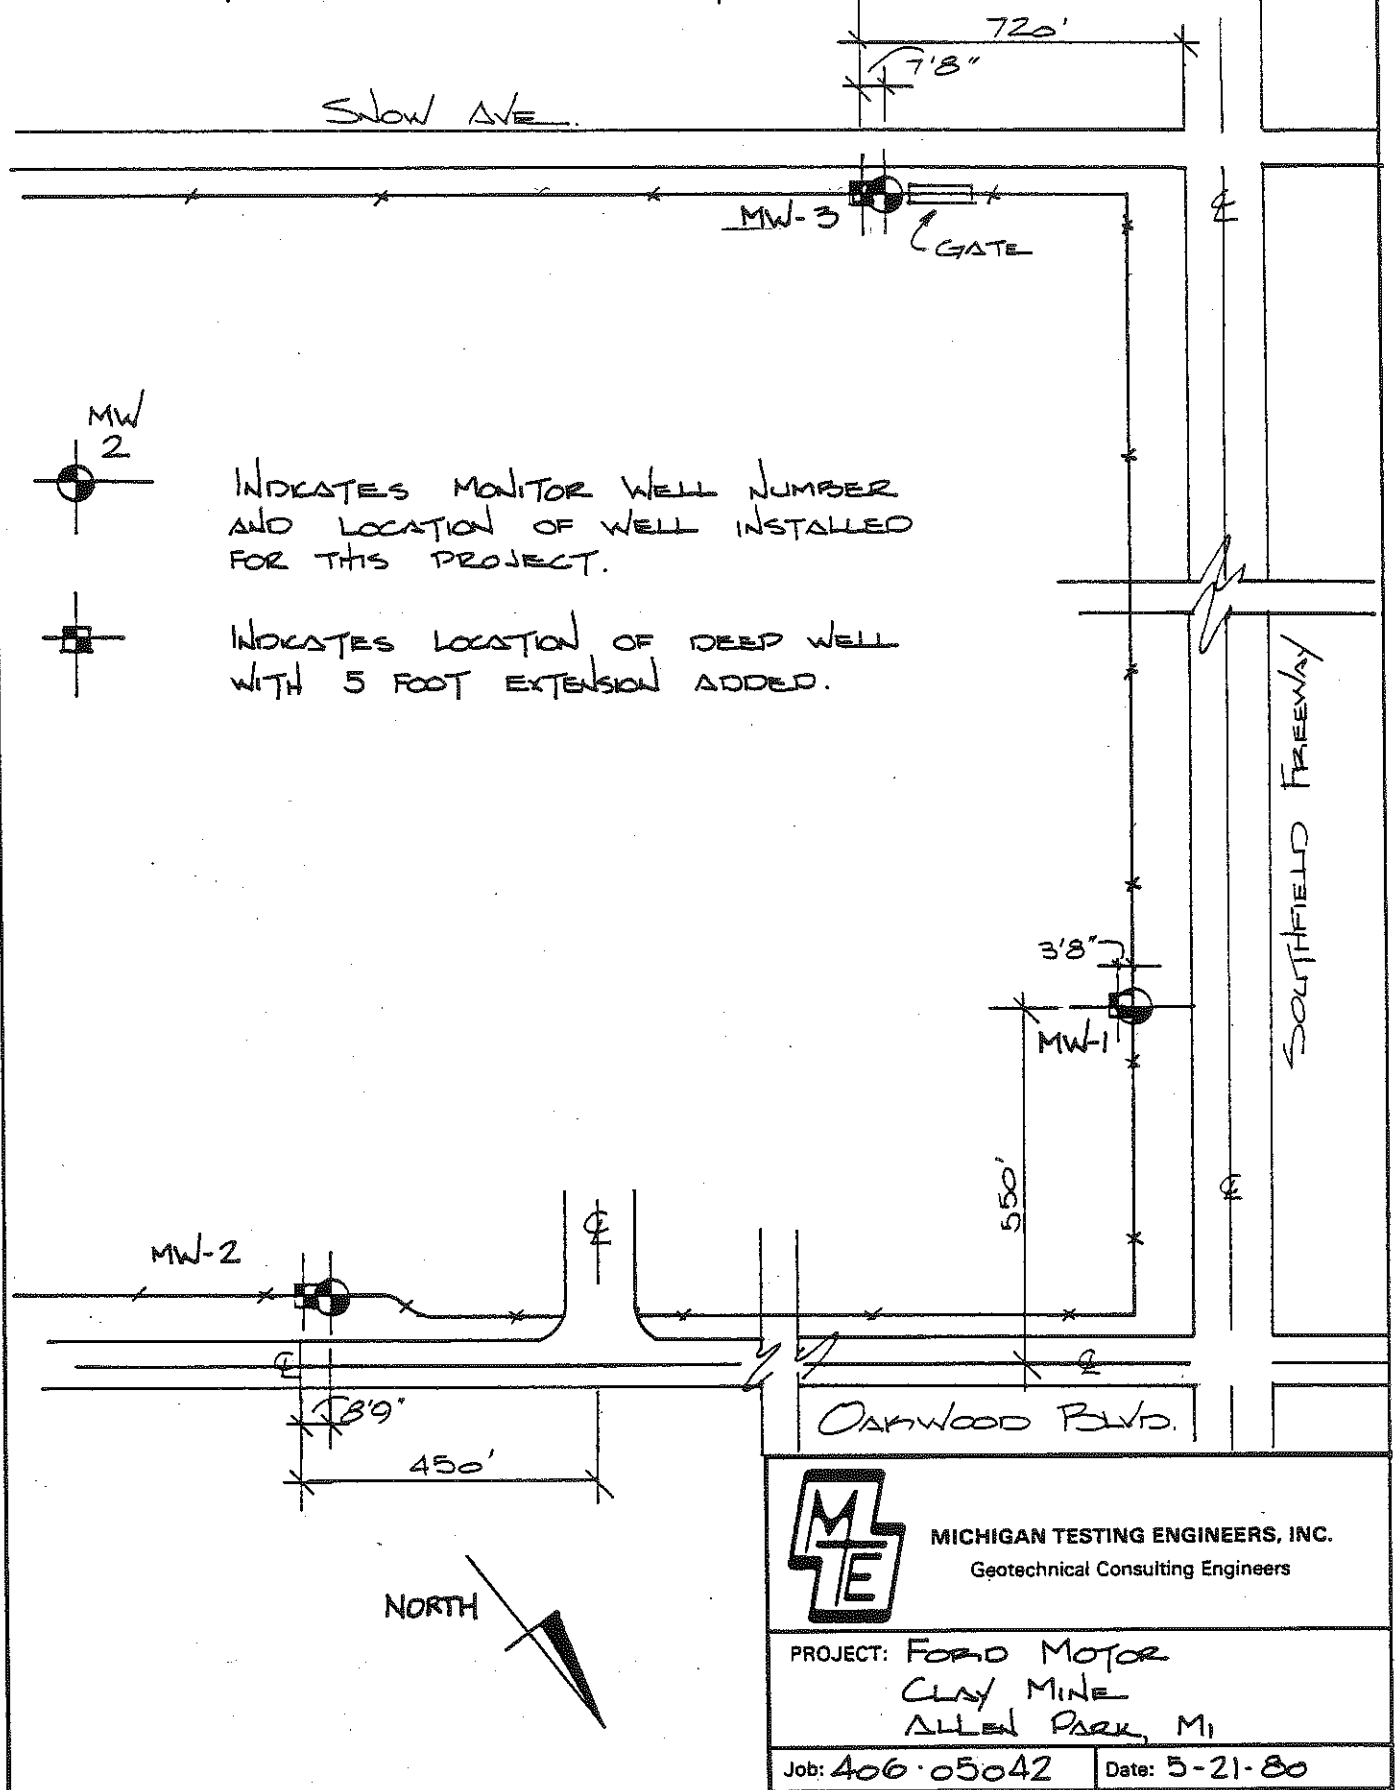 720'
7'8"
SNOW AVE.
MW-3
GATE
℄
MW
2
INDICATES MONITOR WELL NUMBER
AND LOCATION OF WELL INSTALLED
FOR THIS PROJECT.
INDICATES LOCATION OF DEEP WELL
WITH 5 FOOT EXTENSION ADDED.
SOUTHFIELD FREEWAY
3'8"
MW-1
550'
℄
℄
MW-2
℄
℄
8'9"
OAKWOOD BLVD.
450'
MTE
MICHIGAN TESTING ENGINEERS, INC.
Geotechnical Consulting Engineers
NORTH
PROJECT: FORD MOTOR
CLAY MINE
ALLEN PARK, MI
Job: 406·05042
Date: 5-21-80